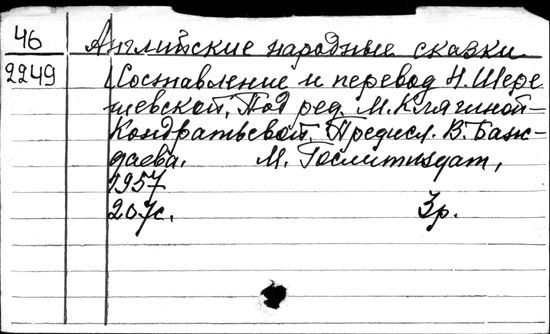 46 Английские народные сказки
2249 (Составление и перевод Н. Шере
шевской, Под ред. М. Клягиной-
Кондратьевой, Предисл. В. Важ-
даева. М. Гослитиздат,
1957
207с. 3р.